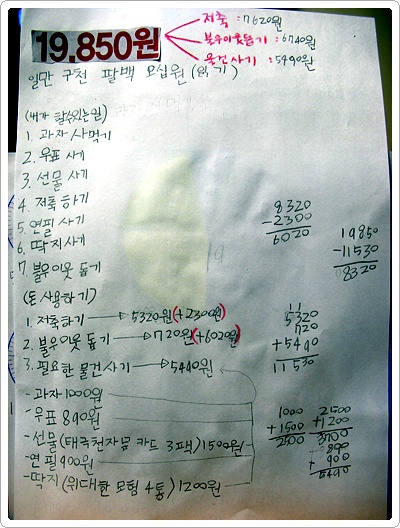 19,850원
저축 : 7620원
불우이웃돕기 : 6740원
물건사기 : 5490원
일만 구천 팔백 오십원 (읽기)
(내가 할수있는일)
1. 과자 사먹기
2. 우표 사기
3. 선물 사기
4. 저축하기
5. 연필 사기
6. 딱지사기
7. 불우이웃 돕기
8320
-2300
6020
19850
-11530
8320
(돈 사용하기)
1. 저축하기 → 5320원 (+2300원)
2. 불우이웃 돕기 → 720원 (+6020원)
3. 필요한 물건사기 → 5490원
11
5320
720
+5490
11530
-과자 1000원
-우표 890원
-선물 (태극천자문 카드 3팩) 1500원
-연필 900원
-딱지 (위대한 모험 4통) 1200원
1000
+1500
2500
2500
+1200
3700
890
+ 900
5490